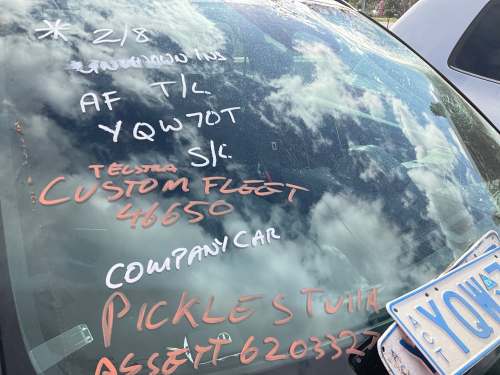 * 2/8
AF T/L
YQW70T
S/C
TELSTRA
CUSTOM FLEET
46650
COMPANY CAR
PICKLES TULLA
ASSETT 6203327
ACT
YQW